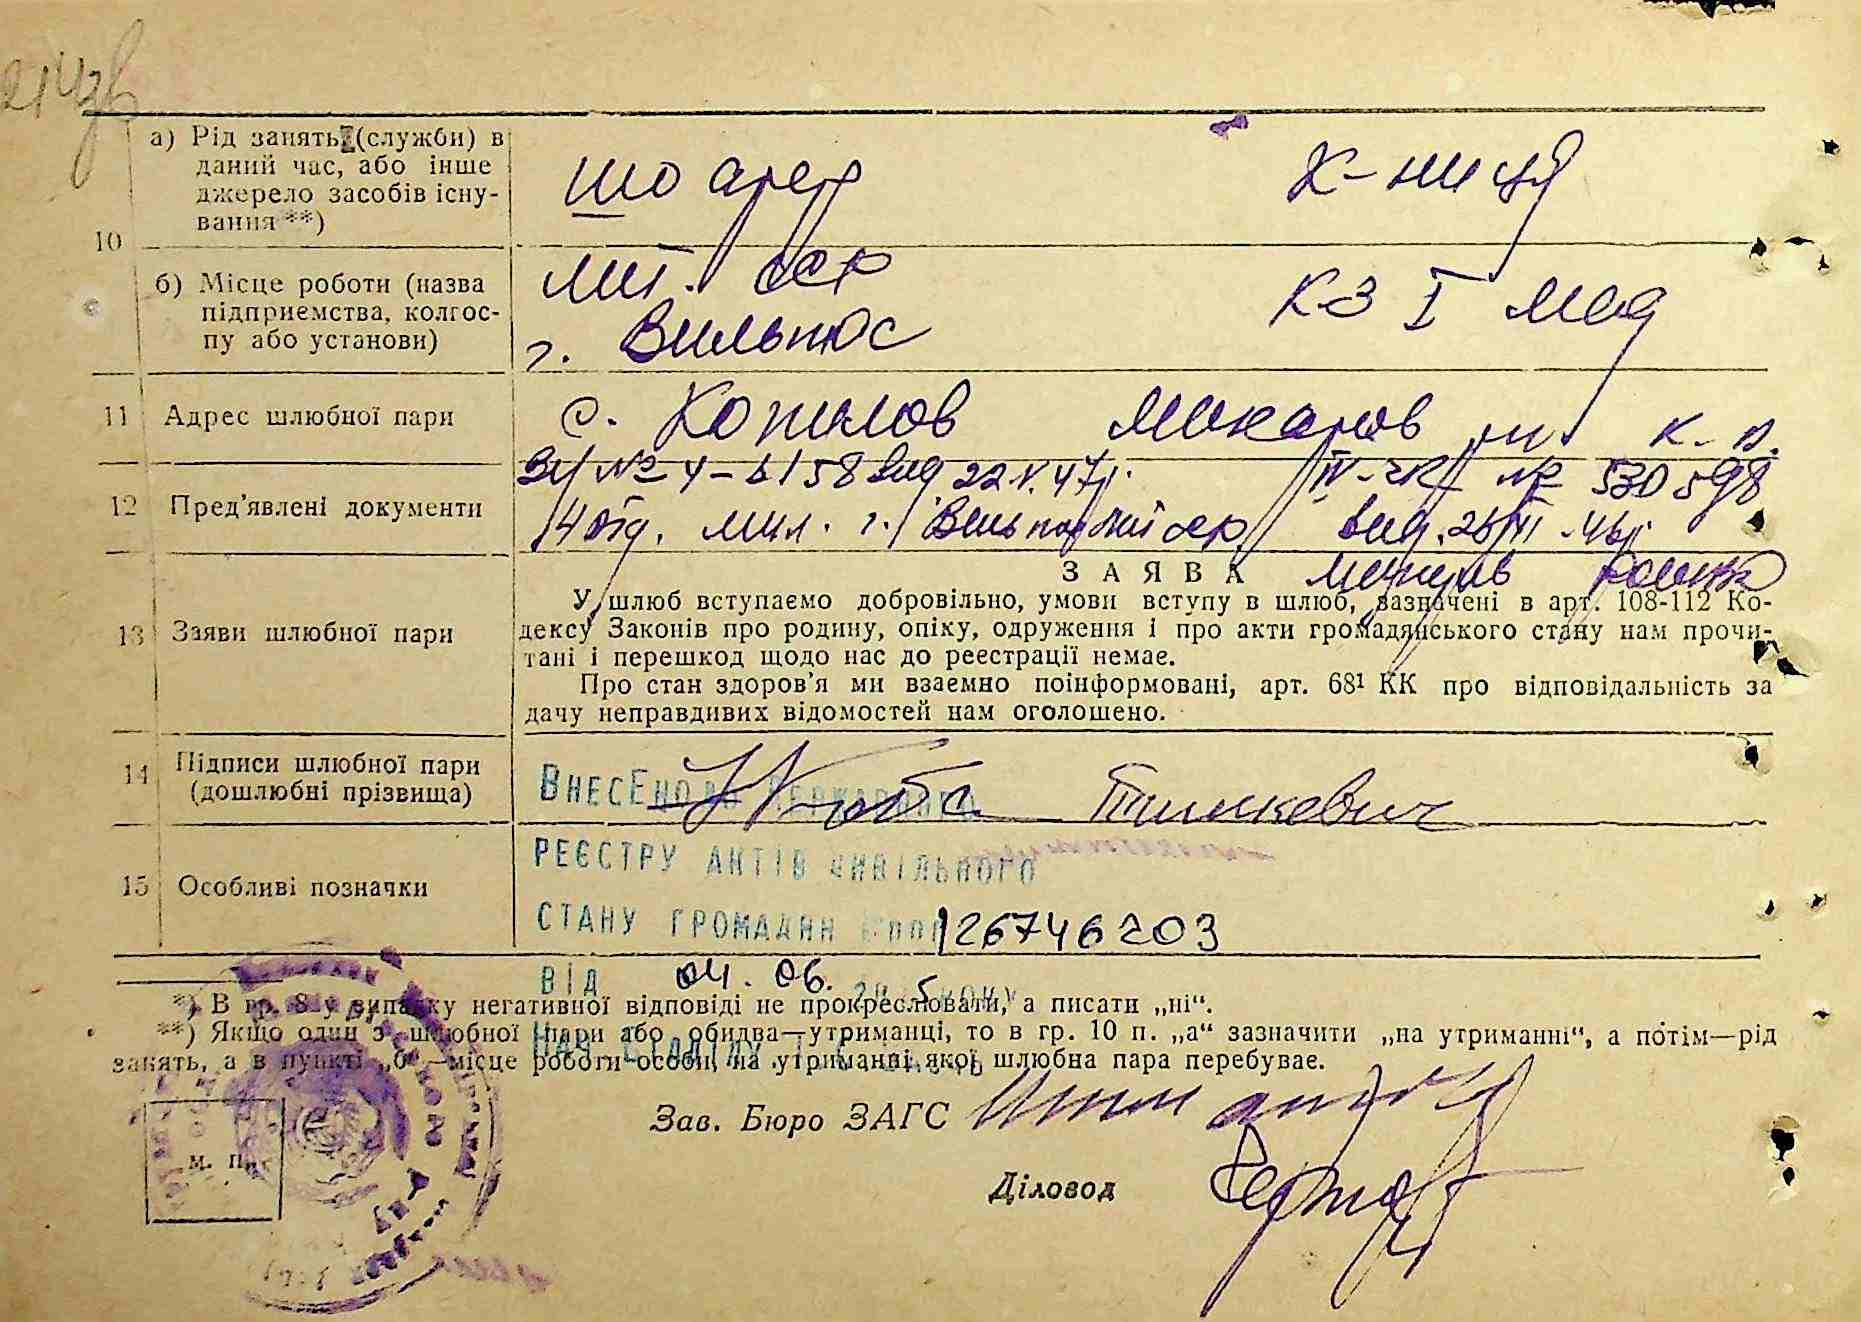 а) Рід занять (служби) в
даний час, або інше
джерело засобів існу-
вання **)
шофер
к-ниця
10
б) Місце роботи (назва
підприємства, колгос-
пу або установи)
Лит. ССР
г. Вильнюс
К-З І Мая
11 Адрес шлюбної пари
с. Копилов Макаров
12 Пред'явлені документи
№ 4-6158 вид 22 V. 47р.
14 отд. мил. г.
№ 530598
вид. 26
13 Заяви шлюбної пари
ЗАЯВА
У шлюб вступаємо добровільно, умови вступу в шлюб, зазначені в арт. 108-112 Ко-
дексу Законів про родину, опіку, одруження і про акти громадянського стану нам прочи-
тані і перешкод щодо нас до реєстрації немає.
Про стан здоров'я ми взаємно поінформовані, арт. 68¹ КК про відповідальність за
дачу неправдивих відомостей нам оголошено.
14 Підписи шлюбної пари
(дошлюбні прізвища)
Тимкевич
Внесено до Державного
реєстру актів цивільного
15 Особливі позначки
стану громадян 126746203
від 04. 06.
*) В гр. 8 у випадку негативної відповіді не прокреслювати, а писати „ні“.
**) Якщо один з шлюбної пари або обидва—утриманці, то в гр. 10 п. „а“ зазначити „на утриманні“, а потім—рід
занять, а в пункті „б“—місце роботи особи, на утриманні якої шлюбна пара перебуває.
Зав. Бюро ЗАГС
м. п.
Діловод